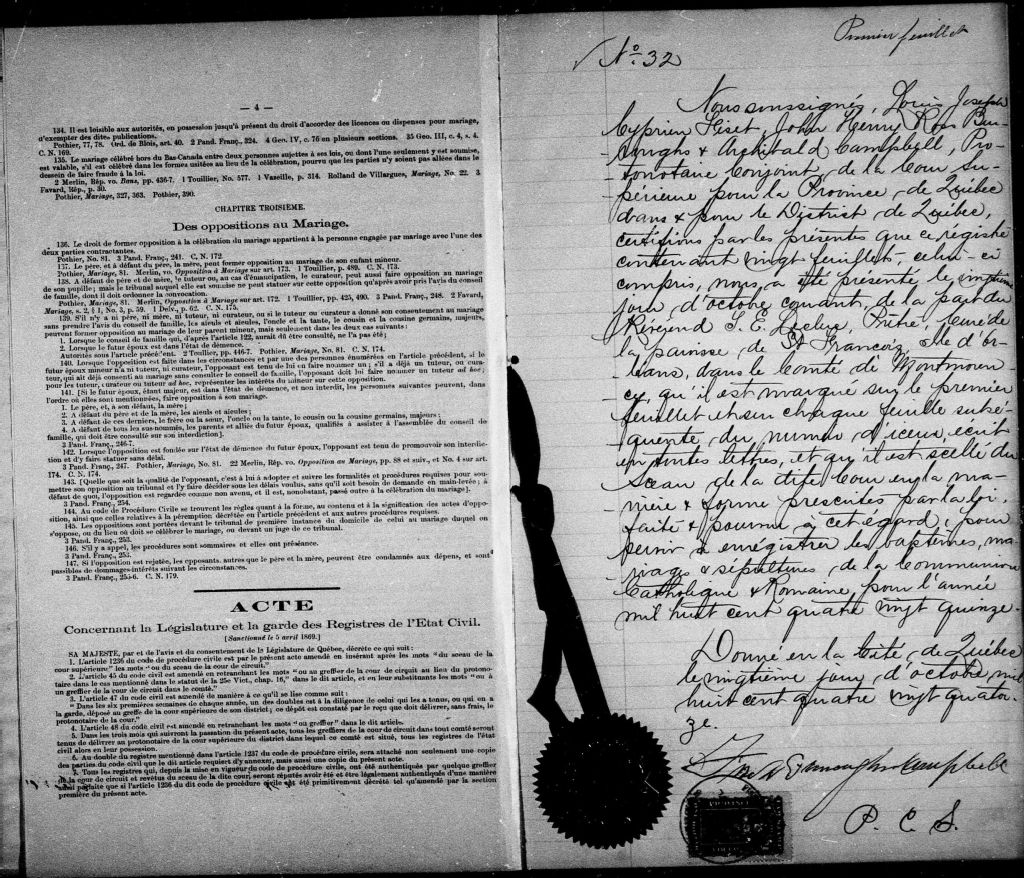 — 4 —
134. Il est loisible aux autorités, en possession jusqu'à présent du droit d'accorder des licences ou dispenses pour mariage,
d'exempter des dites publications.
Pothier, 77, 78. Ord. de Blois, art. 40. 2 Pand. Franç., 324. 4 Geo. IV, c. 76 en plusieurs sections. 35 Geo. III, c. 4, s. 4.
C. N. 169.
135. Le mariage célébré hors du Bas-Canada entre deux personnes sujettes à ses lois, ou dont l'une seulement y est soumise,
est valable, s'il est célébré dans les formes usitées au lieu de la célébration, pourvu que les parties n'y soient pas allées dans le
dessein de faire fraude à la loi.
2 Merlin, Rép. vo. Bans, pp. 436-7. 1 Touillier, No. 577. 1 Vazeille, p. 314. Rolland de Villargues, Mariage, No. 22. 3
Favard, Rép., p. 30.
Pothier, Mariage, 327, 363. Pothier, 390.
CHAPITRE TROISIÈME.
Des oppositions au Mariage.
136. Le droit de former opposition à la célébration du mariage appartient à la personne engagée par mariage avec l'une des
deux parties contractantes.
Pothier, No. 81. 3 Pand. Franç., 241. C. N. 172.
137. Le père, et à défaut du père, la mère, peut former opposition au mariage de son enfant mineur.
Pothier, Mariage, 81. Merlin, vo. Opposition à Mariage sur art. 173. 1 Touillier, p. 489. C. N. 173.
138. A défaut de père et de mère, le tuteur ou, au cas d'émancipation, le curateur, peut aussi faire opposition au mariage
de son pupille; mais le tribunal auquel elle est soumise ne peut statuer sur cette opposition qu'après avoir pris l'avis du conseil
de famille, dont il doit ordonner la convocation.
Pothier, Mariage, 81. Merlin, Opposition à Mariage sur art. 172. 1 Touillier, pp. 425, 490. 3 Pand. Franç., 248. 2 Favard,
Mariage, s. 2, § 1, No. 3, p. 59. 1 Delv., p. 62. C. N. 175.
139. S'il n'y a ni père, ni mère, ni tuteur, ni curateur, ou si le tuteur ou curateur a donné son consentement au mariage
sans prendre l'avis du conseil de famille, les aïeuls et aïeules, l'oncle et la tante, le cousin et la cousine germains, majeurs,
peuvent former opposition au mariage de leur parent mineur, mais seulement dans les deux cas suivants:
1. Lorsque le conseil de famille qui, d'après l'article 122, aurait dû être consulté, ne l'a pas été;
2. Lorsque le futur époux est dans l'état de démence.
Autorités sous l'article précédent. 2 Touillier, pp. 446-7. Pothier, Mariage, No. 81. C. N. 174.
140. Lorsque l'opposition est faite dans les circonstances et par une des personnes énumérées en l'article précédent, si le
futur époux mineur n'a ni tuteur, ni curateur, l'opposant est tenu de lui en faire nommer un; s'il a déjà un tuteur, ou cura-
teur, qui ait déjà consenti au mariage sans consulter le conseil de famille, l'opposant doit lui faire nommer un tuteur ad hoc;
pour les tuteur, curateur ou tuteur ad hoc, représenter les intérêts du mineur sur cette opposition.
141. [Si le futur époux, étant majeur, est dans l'état de démence, et non interdit, les personnes suivantes peuvent, dans
l'ordre où elles sont mentionnées, faire opposition à son mariage.
1. Le père, et, à son défaut, la mère;
2. A défaut du père et de la mère, les aïeuls et aïeules;
3. A défaut de ces derniers, le frère ou la sœur, l'oncle ou la tante, le cousin ou la cousine germains, majeurs;
4. A défaut de tous les sus-nommés, les parents et alliés du futur époux, qualifiés à assister à l'assemblée du conseil de
famille, qui doit être consulté sur son interdiction].
3 Pand. Franç., 246-7.
142. Lorsque l'opposition est fondée sur l'état de démence du futur époux, l'opposant est tenu de promouvoir son interdic-
tion et d'y faire statuer sans délai.
3 Pand. Franç., 247. Pothier, Mariage, No. 81. 22 Merlin, Rép. vo. Opposition au Mariage, pp. 88 et suiv., et No. 4 sur art.
174. C. N. 174.
143. [Quelle que soit la qualité de l'opposant, c'est à lui à adopter et suivre les formalités et procédures requises pour sou-
mettre son opposition au tribunal et l'y faire décider sous les délais voulus, sans qu'il soit besoin de demande en main-levée; à
défaut de quoi, l'opposition est regardée comme non avenu, et il est, nonobstant, passé outre à la célébration du mariage].
3 Pand. Franç., 254.
144. Au code de Procédure Civile se trouvent les règles quant à la forme, au contenu et à la signification des actes d'oppo-
sition, ainsi que celles relatives à la péremption décrétée en l'article précédent et aux autres procédures requises.
145. Les oppositions sont portées devant le tribunal de première instance du domicile de celui au mariage duquel on
s'oppose, ou du lieu où doit se célébrer le mariage, ou devant un juge de ce tribunal.
3 Pand. Franç., 253.
146. S'il y a appel, les procédures sont sommaires et elles ont préséance.
3 Pand. Franç., 253.
147. Si l'opposition est rejetée, les opposants, autres que le père et la mère, peuvent être condamnés aux dépens, et sont
passibles de dommages-intérêts suivant les circonstances.
3 Pand. Franç., 255-6. C. N. 179.
ACTE
Concernant la Législature et la garde des Registres de l'Etat Civil.
[Sanctionné le 5 avril 1869.]
SA MAJESTE, par et de l'avis et du consentement de la Législature de Québec, décrète ce qui suit:
1. L'article 1236 du code de procédure civile est par le présent acte amendé en insérant après les mots "du sceau de la
cour supérieure" les mots "ou du sceau de la cour de circuit."
2. L'article 45 du code civil est amendé en retranchant les mots "ou au greffier de la cour de circuit au lieu du protono-
taire dans le cas mentionné dans le statut de la 25e Vict, chap. 16," dans le dit article, et en leur substituant les mots "ou à
un greffier de la cour de circuit dans le comté."
3. L'article 47 du code civil est amendé de manière à ce qu'il se lise comme suit:
"Dans les six premières semaines de chaque année, un des doubles est à la diligence de celui qui les a tenus, ou qui en a
la garde, déposé au greffe de la cour supérieure de son district; ce dépôt est constaté par le reçu que doit délivrer, sans frais, le
protonotaire de la cour."
4. L'article 48 du code civil est amendé en retranchant les mots "ou greffier" dans le dit article.
5. Dans les trois mois qui suivront la passation du présent acte, tous les greffiers de la cour de circuit dans tout comté seront
tenus de délivrer au protonotaire de la cour supérieure du district dans lequel ce comté est situé, tous les registres de l'état
civil alors en leur possession.
6. Au double du registre mentionné dans l'article 1237 du code de procédure civile, sera attaché non seulement une copie
des parties du code civil que le dit article requiert d'y annexer, mais aussi une copie du présent acte.
7. Tous les registres qui, depuis la mise en vigueur du code de procédure civile, ont été authentiqués par quelque greffier
de la cour de circuit et revêtus du sceau de la dite cour, seront réputés avoir été et être légalement authentiqués d'une manière
aussi parfaite que si l'article 1236 du dit code de procédure civile eût été primitivement décrété tel qu'amendé par la section
première du présent acte.
Premier feuillet
No 32
Nous soussignés, Louis Joseph
Cyprien Fiset, John Henry Ross Bur-
roughs & Archibald Campbell, Pro-
tonotaire Conjoint, de la Cour Su-
périeure pour la Province de Québec
dans & pour le District de Québec,
certifions par les présentes que ce registre
contenant vingt feuillets, celui-ci
compris, nous a été présenté le vingtième
jour d'octobre courant, de la part du
Révérend J. E. Leclerc, Prêtre, Curé de
la paroisse de St François, Isle d'Or-
léans, dans le Comté de Montmoren-
cy, qu'il est marqué sur le premier
feuillet et sur chaque feuille subsé-
quente, du numéro d'iceux, écrit
en toutes lettres, et qu'il est scellé du
Sceau de la dite Cour en la ma-
nière & forme prescrites par la loi
faite & pourvue à cet égard; pour
servir à enrégistrer les baptêmes, ma-
riages & sépultures, de la Communion
Catholique & Romaine, pour l'année
mil huit cent quatre vingt quinze.
Donné en la Cité de Québec
le vingtième jour d'octobre, mil
huit cent quatre vingt quator-
ze.
Fiset Burroughs Campbell
P. C. S.